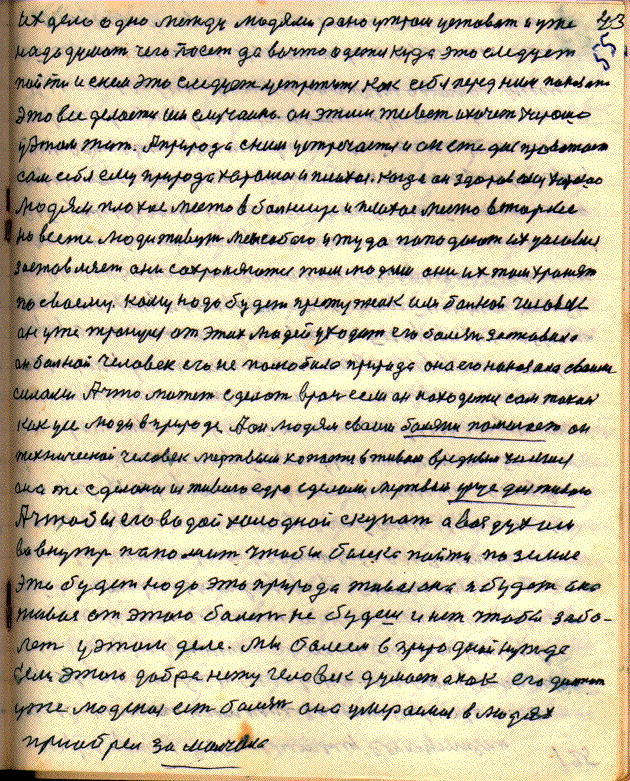 их дело одно между людями рано утром уставать и уже 43
надо думать чего поест да во что одется куда это следует 55
пойти и с кем это следует устретится как себя перед ним показат
это все делается случаина. он этим живет и хочет хорошо
у этом жит. А природа с ним устречается и он сте
сам себя ему природа хараша и плахая. когда он здаров ему харашо
людям плохое место в болнице и плахое место в тюрме
но все те люди живут меж собою и туда попадают их условия
заставляет они сохроняются там людми они их там хранят
по своему. кому надо будет преступник или болной человек
он уже тронулся от этих людей уходит его болезнь заставила
он болной человек его не полюбила природа она его наказала своими
силами А что может сделат врач если он находится сам такая
как усе люди в природе Он людям своим болезни помагает он
технической человек мертвым копается в живом вредным
она же сделана из живого ядро сделали мертвым уже для живого
А чтобы его водой халодной скупат а воздухам
во внутр папомнит чтобы боска пойти по земле
это будет надо это природа живая она и будет она
живая от этого болет не будеш и нет чтобы забо-
лет у этом деле. мы болеем в природной нужде
Если этого добра нету человек думает а как его
уже людская ест болезнь она умираимая в людях
приобрел за малава